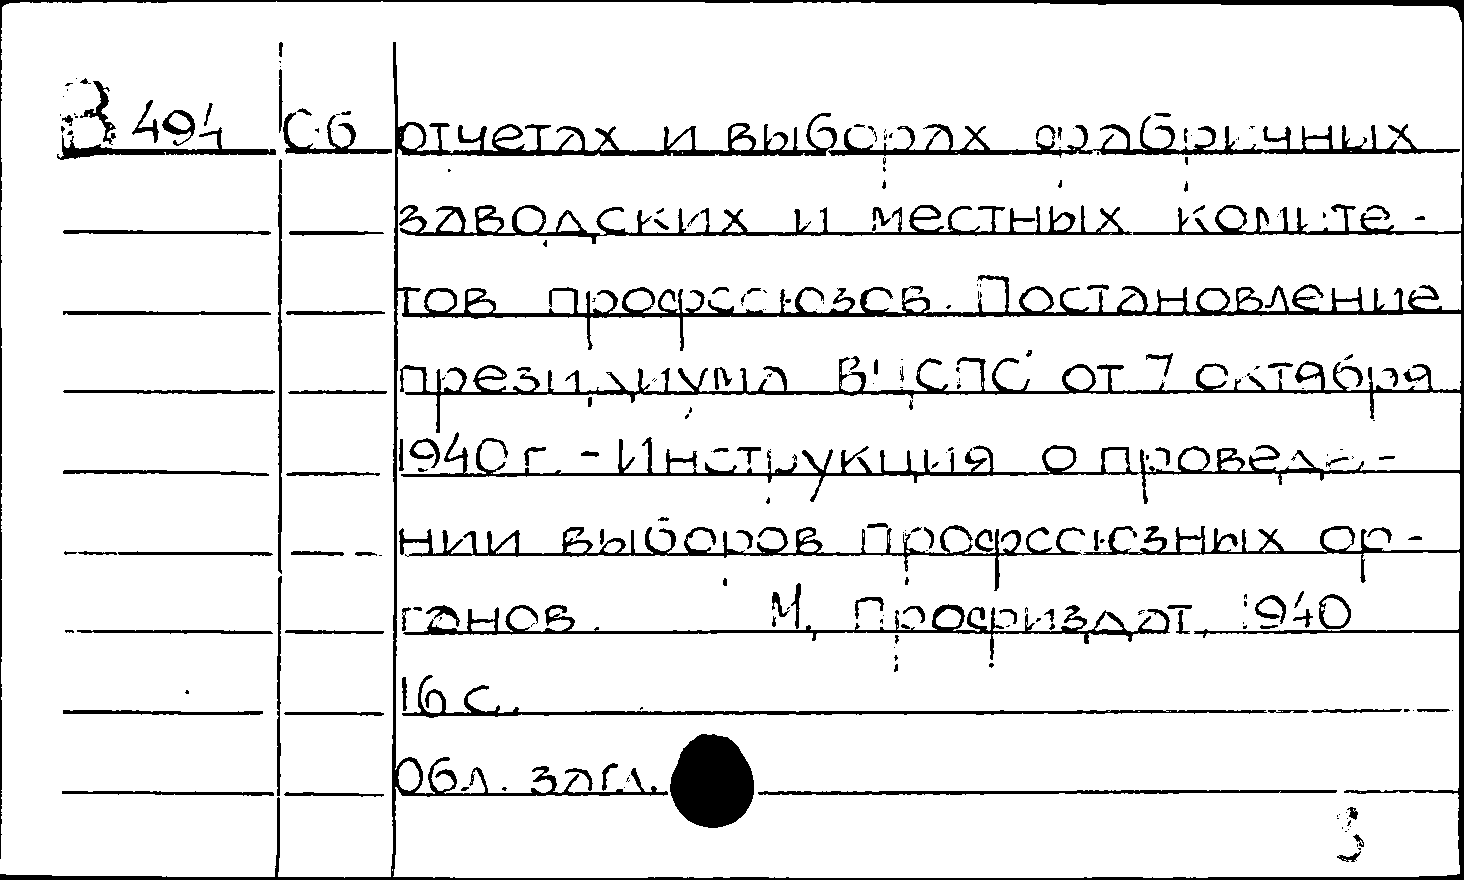 В 494 Сб отчетах и выборах фабричных
заводских и местных комите-
тов профсоюзов. Постановление
президиума ВЦСПС от 7 октября
1940 г. - Инструкция о проведе-
нии выборов профсоюзных ор-
ганов. М., Профиздат, 1940
16 с.
Обл. загл.
3